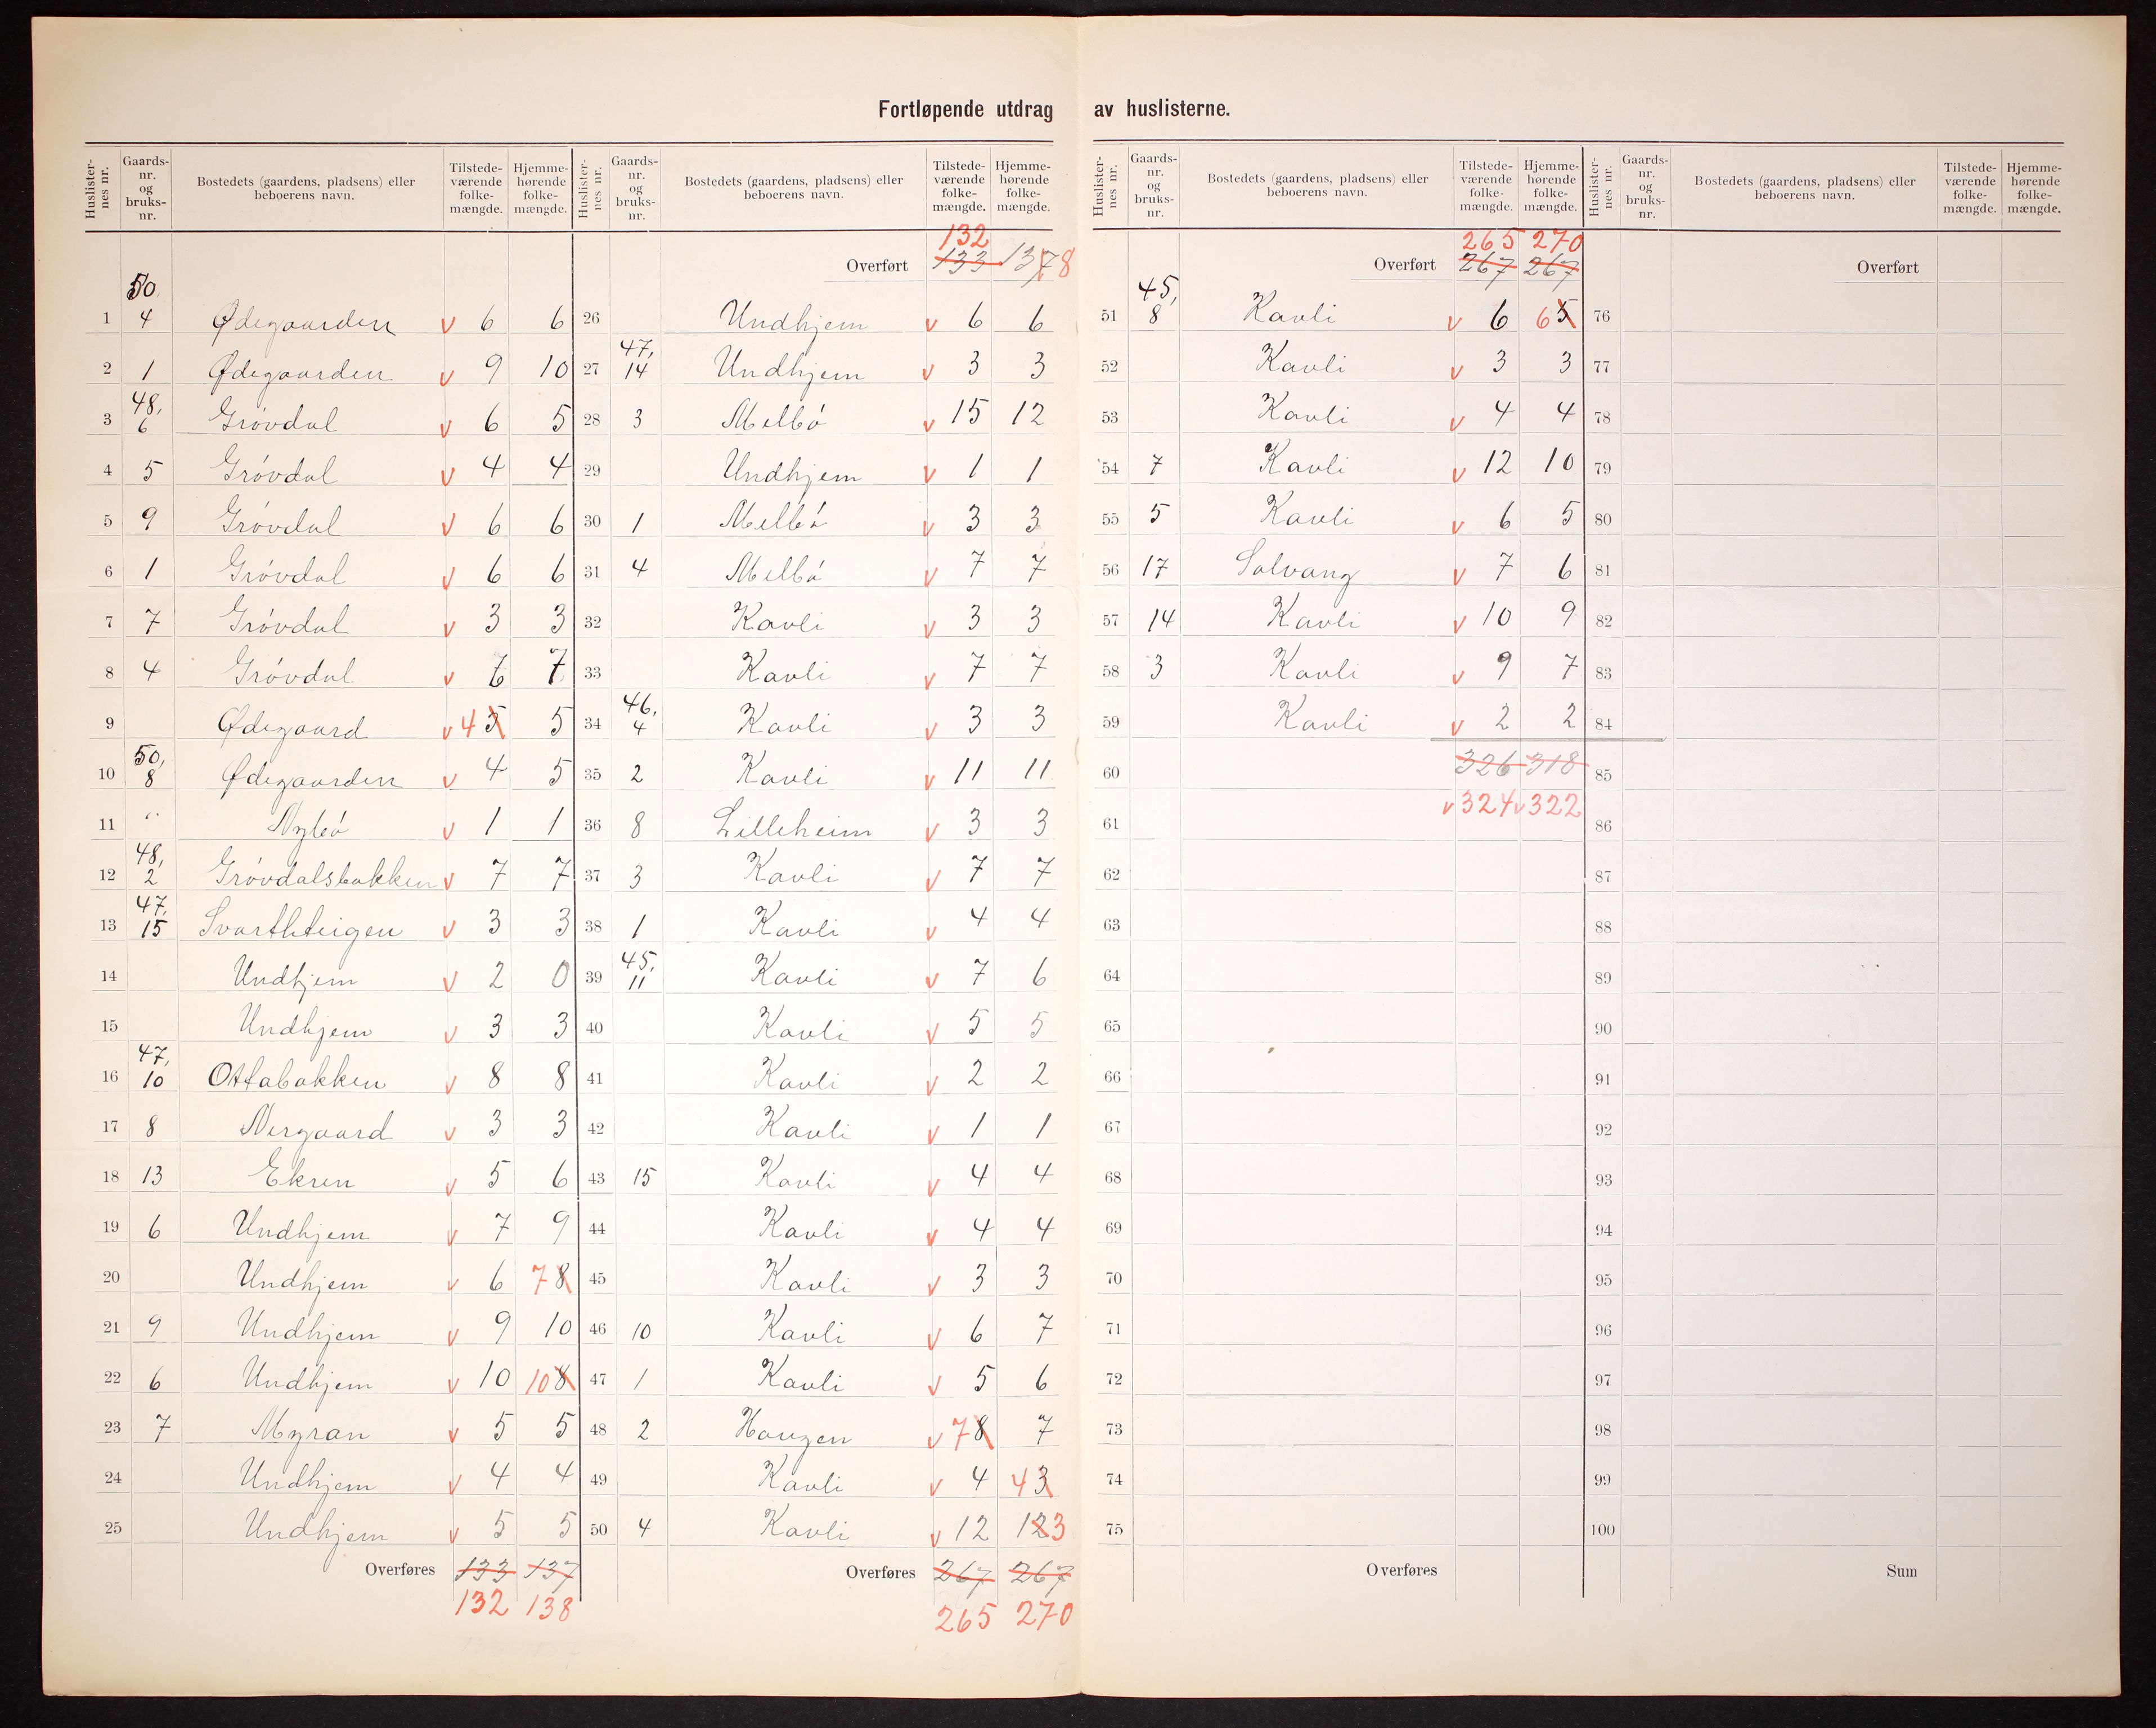 Fortløpende utdrag av huslisterne.
Huslister-nes nr. Gaards-nr. og bruks-nr. Bostedets (gaardens, pladsens) eller beboerens navn. Tilstede-værende folke-mængde. Hjemme-hørende folke-mængde.
1 50, 4 Ødegaarden v 6 6
2 1 Ødegaarden v 9 10
3 48, 6 Grövdal v 6 5
4 5 Grövdal v 4 4
5 9 Grövdal v 6 6
6 1 Grövdal v 6 6
7 7 Grövdal v 3 3
8 4 Grövdal v 6 7
9 Ødegaard v 4 5 5
10 50, 8 Ødegaarden v 4 5
11 " Nybö v 1 1
12 48, 2 Grövdalsbakken v 7 7
13 47, 15 Svartteigen v 3 3
14 Undhjem v 2 0
15 Undhjem v 3 3
16 47, 10 Ottabakken v 8 8
17 8 Nergaard v 3 3
18 13 Ekren v 5 6
19 6 Undhjem v 7 9
20 Undhjem v 6 7 8
21 9 Undhjem v 9 10
22 6 Undhjem v 10 10 8
23 7 Myran v 5 5
24 Undhjem v 4 4
25 Undhjem v 5 5
Overføres 133 137
132 138
Huslister-nes nr. Gaards-nr. og bruks-nr. Bostedets (gaardens, pladsens) eller beboerens navn. Tilstede-værende folke-mængde. Hjemme-hørende folke-mængde.
132
Overført 133 137 8
26 Undhjem v 6 6
27 47, 14 Undhjem v 3 3
28 3 Melbö v 15 12
29 Undhjem v 1 1
30 1 Melbö v 3 3
31 4 Melbö v 7 7
32 Kavli v 3 3
33 Kavli v 7 7
34 46, 4 Kavli v 3 3
35 2 Kavli v 11 11
36 8 Lilleheim v 3 3
37 3 Kavli v 7 7
38 1 Kavli v 4 4
39 45, 11 Kavli v 7 6
40 Kavli v 5 5
41 Kavli v 2 2
42 Kavli v 1 1
43 15 Kavli v 4 4
44 Kavli v 4 4
45 Kavli v 3 3
46 10 Kavli v 6 7
47 1 Kavli v 5 6
48 2 Haugen v 7 8 7
49 Kavli v 4 4 3
50 4 Kavli v 12 12 3
Overføres 267 267
265 270
Huslister-nes nr. Gaards-nr. og bruks-nr. Bostedets (gaardens, pladsens) eller beboerens navn. Tilstede-værende folke-mængde. Hjemme-hørende folke-mængde.
265 270
Overført 267 267
51 45, 8 Kavli v 6 6 5
52 Kavli v 3 3
53 Kavli v 4 4
54 7 Kavli v 12 10
55 5 Kavli v 6 5
56 17 Solvang v 7 6
57 14 Kavli v 10 9
58 3 Kavli v 9 7
59 Kavli v 2 2
60 326 318
v 324 v 322
61
62
63
64
65
66
67
68
69
70
71
72
73
74
75
Overføres
Huslister-nes nr. Gaards-nr. og bruks-nr. Bostedets (gaardens, pladsens) eller beboerens navn. Tilstede-værende folke-mængde. Hjemme-hørende folke-mængde.
Overført
76
77
78
79
80
81
82
83
84
85
86
87
88
89
90
91
92
93
94
95
96
97
98
99
100
Sum